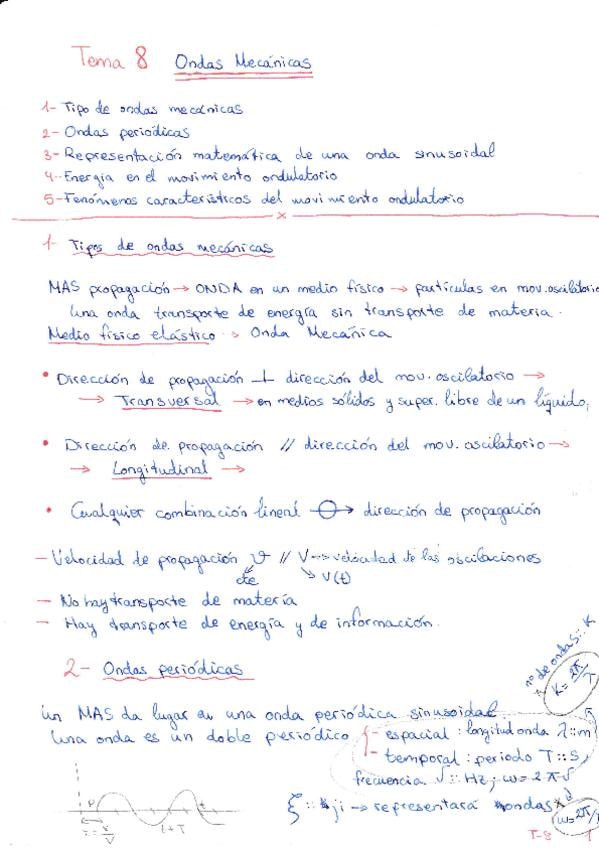 Tema 8 Ondas Mecánicas
1- Tipo de ondas mecánicas
2- Ondas periódicas
3- Representación matemática de una onda sinusoidal
4- Energía en el movimiento ondulatorio
5- Fenómenos característicos del movimiento ondulatorio
1- Tipos de ondas mecánicas
MAS propagación → ONDA en un medio físico → partículas en mov. oscilatorio
Una onda transporte de energía sin transporte de materia.
Medio físico elástico → Onda Mecánica
• Dirección de propagación ⊥ dirección del mov. oscilatorio →
→ Transversal → en medios sólidos y super. libre de un líquido,
• Dirección de propagación // dirección del mov. oscilatorio →
→ Longitudinal →
• Cualquier combinación lineal → dirección de propagación
- Velocidad de propagación v // V → velocidad de las oscilaciones
cte V(t)
- No hay transporte de materia
- Hay transporte de energía y de información.
nº de ondas :: K
2- Ondas periódicas
Un MAS da lugar en una onda periódica sinusoidal
Una onda es un doble periódico - espacial : longitud onda λ :: m
- temporal : periodo T :: s,
frecuencia ν :: Hz ; ω = 2πν
→ representará ondas
P t t+T
T-8 1